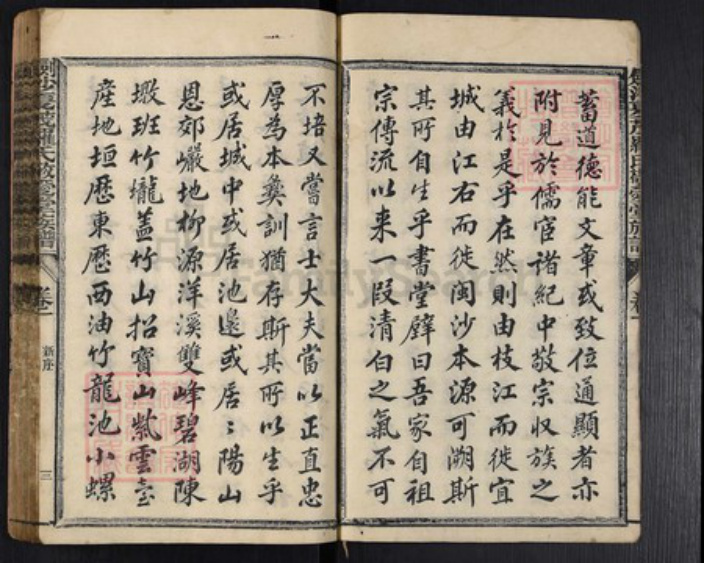 蓄道德能文章或致位通顯者亦
附見於儒宦諸紀中敬宗収族之
義於是乎在然則由枝江而徙宜
城由江右而徙閩沙本源可溯斯
其所自生乎書堂壁曰吾家自祖
宗傳流以来一段清白之氣不可
不培又嘗言士大夫當以正直忠
厚為本彜訓猶存斯其所以生乎
或居城中或居池邉或居〻陽山
恩郊巗地柳源洋溪雙峰碧湖陳
墩班竹壠蓋竹山招寳山紫雲臺
産地垣歴東歴西油竹龍池小螺
卷一
新序
三
FamilySearch